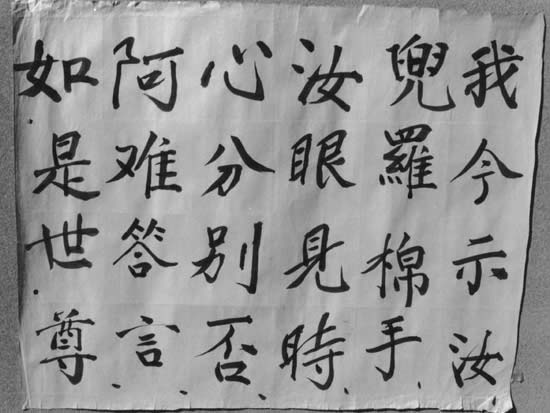 我今示汝
兜羅棉手
汝眼見時
心分别否
阿难答言
如是世尊